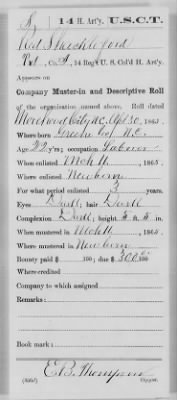 S. 14 H. Art'y. U.S.C.T.
Ned Shackleford
Pvt., Co. A, 14 Reg't U. S. Col'd H. Art'y.
Appears on
Company Muster-in and Descriptive Roll
of the organization named above. Roll dated
Morehead City, N.C. Apl 30, 1865.
Where born Greene Co., N.C.
Age 22 y'rs; occupation Laborer
When enlisted Mch 11, 1865.
Where enlisted Newbern
For what period enlisted 3 years.
Eyes Dark; hair Dark
Complexion Dark; height 5 ft. 5 in.
When mustered in Mch 11, 1865.
Where mustered in Newbern
Bounty paid $ 100; due $ 300 100
Where credited
Company to which assigned
Remarks:
Book mark:
E.B. Thompson
Copyist.